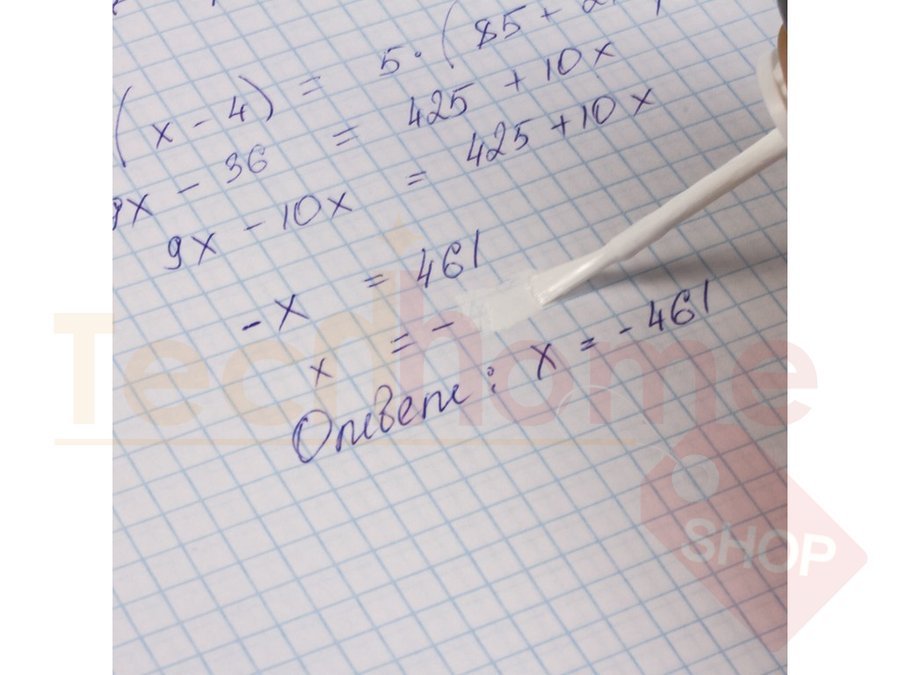 (x - 4) = 5·(85 + 2
9x - 36 = 425 + 10x
9x - 10x = 425 + 10x
-x = 461
x = -
Ответ: x = -461
Techhome
SHOP